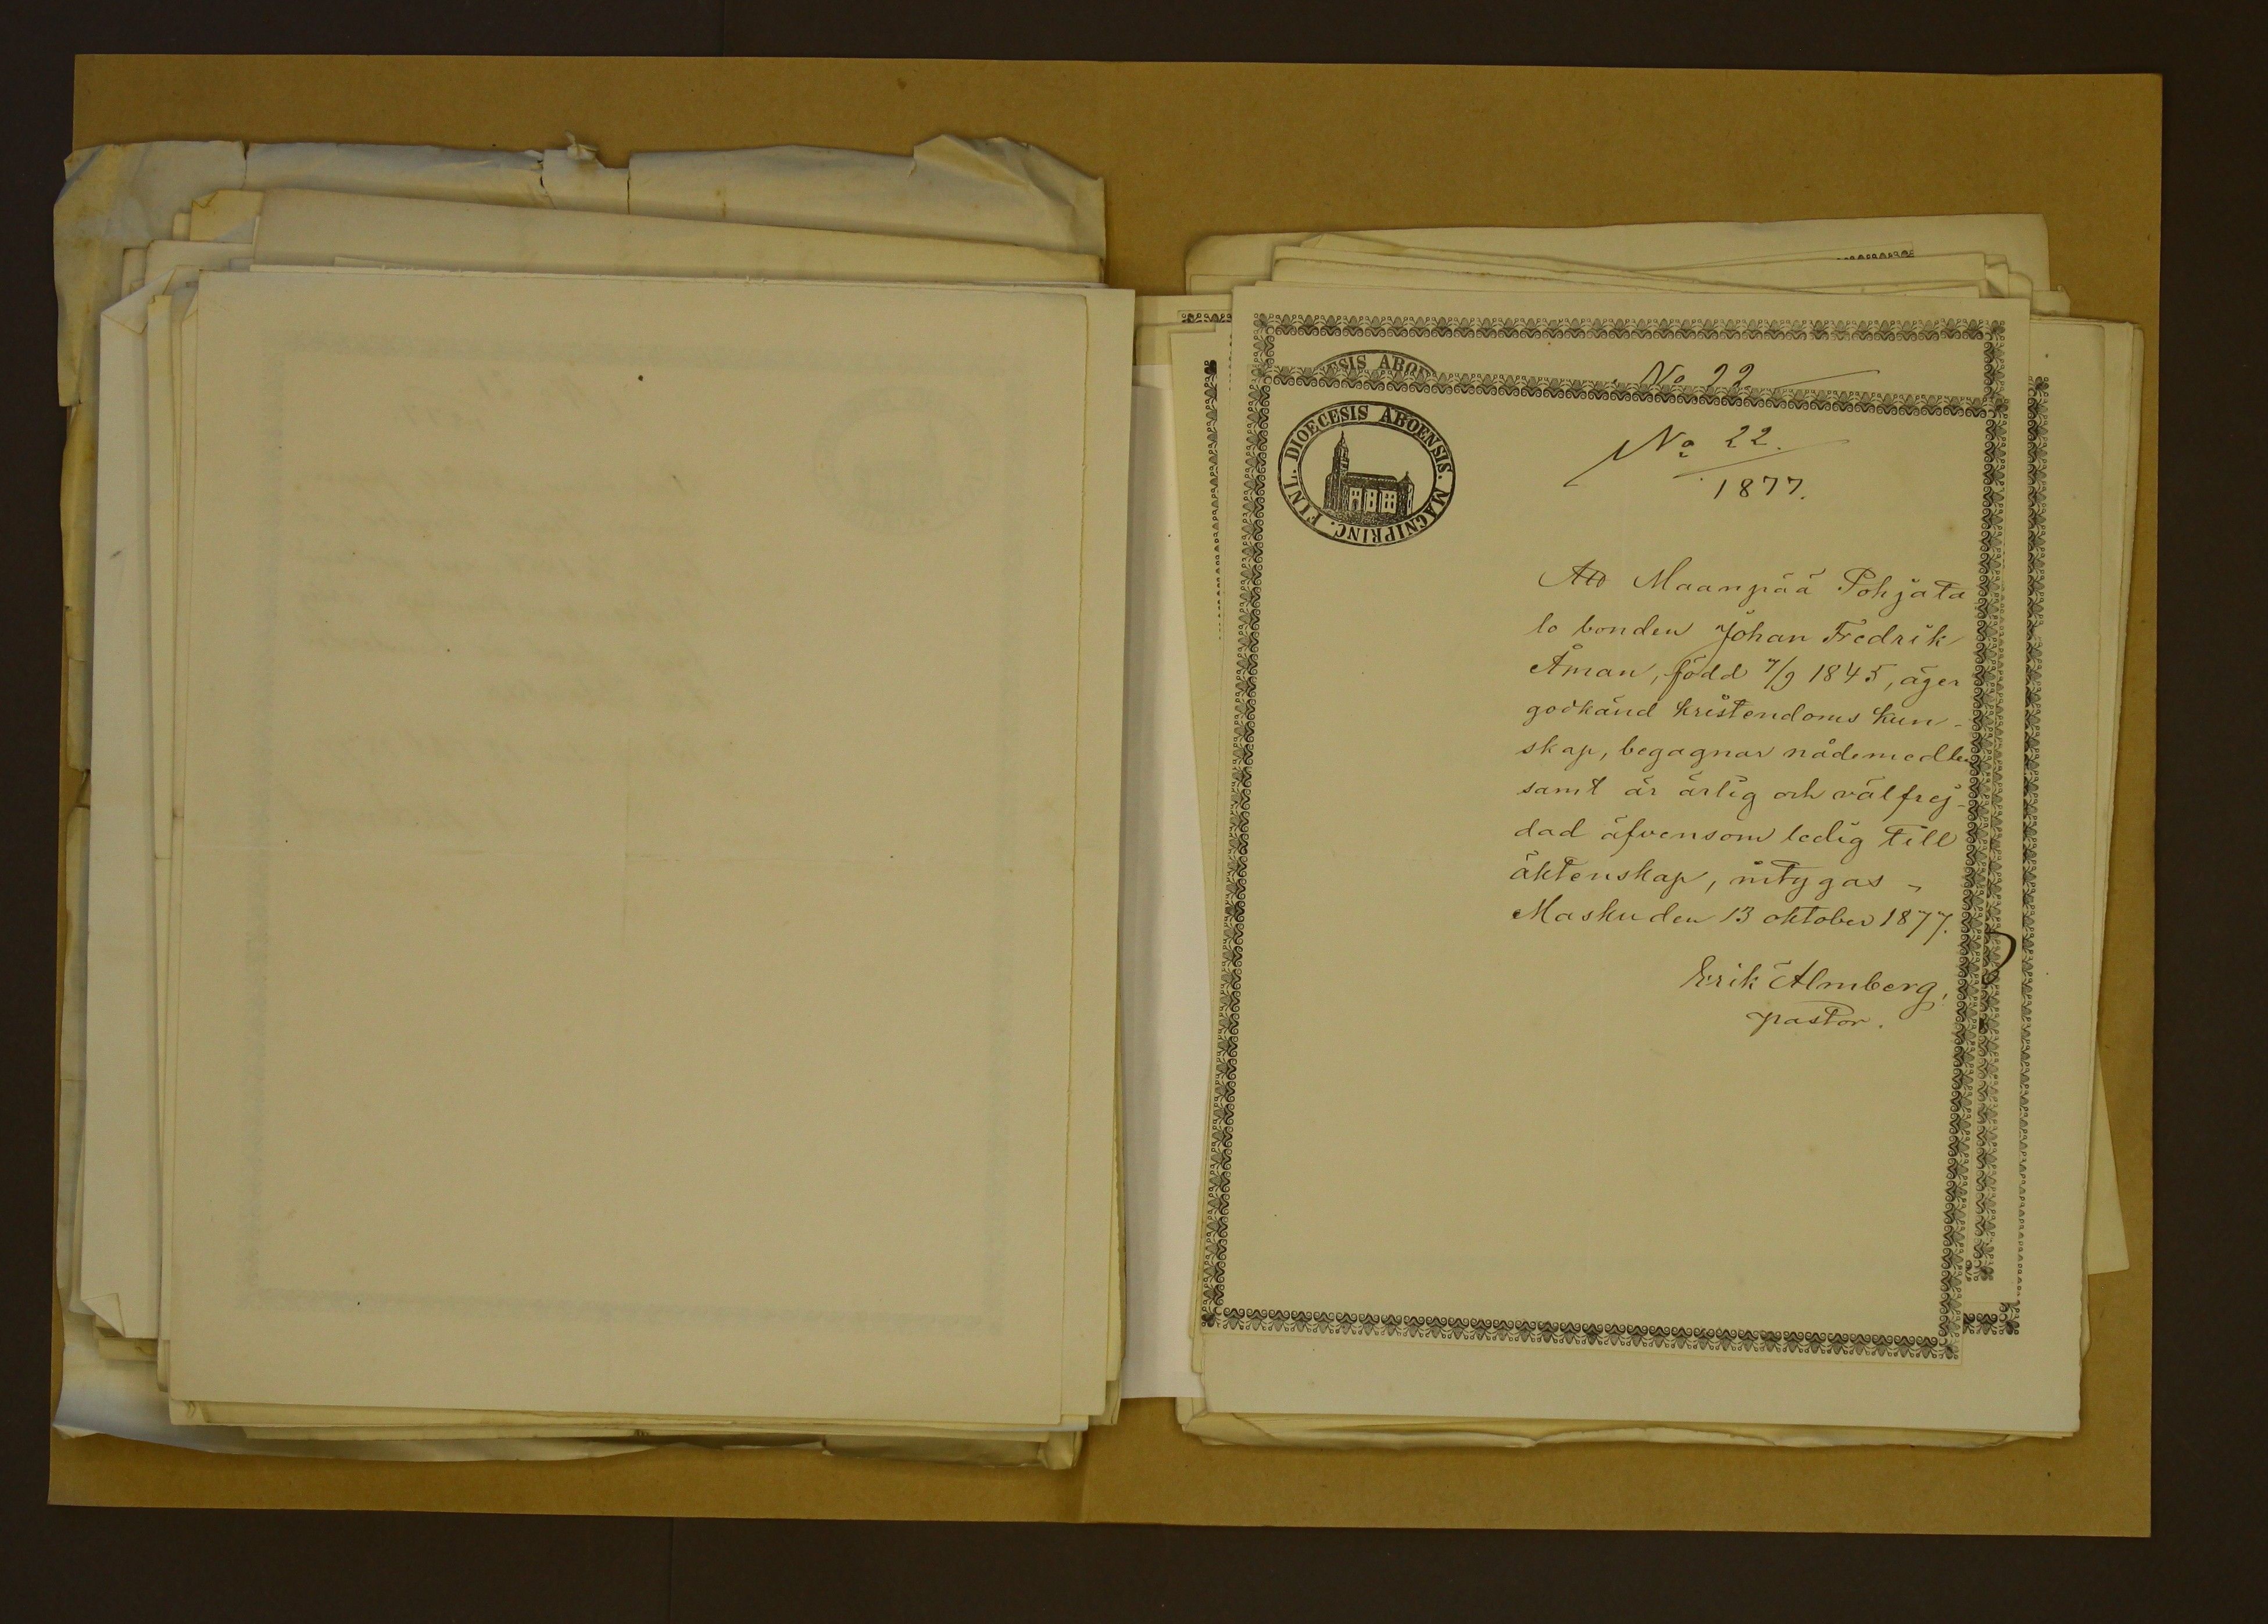 ESIS ABOE
No 22
DIOECESIS ABOENSIS. MAGNIPRINC. FINL.
No 22.
1877.
Att Maanpää Pohjata
lo bonden Johan Fredrik
Åman, född 7/9 1845, äger
godkänd kristendoms kun-
skap, begagnar nådemedlen
samt är ärlig och välfrej-
dad äfvensom ledig till
äktenskap, intygas -
Masku den 13 oktober 1877.
Erik Almberg,
pastor.